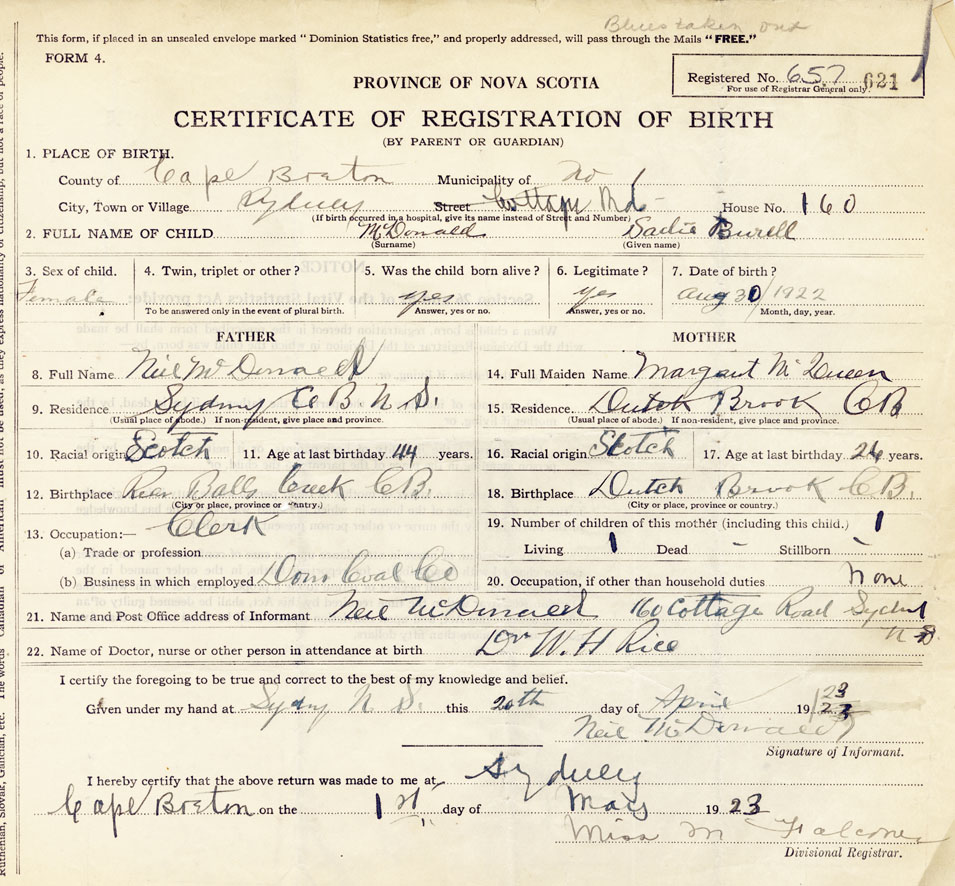 Blues taken out
This form, if placed in an unsealed envelope marked "Dominion Statistics free," and properly addressed, will pass through the Mails "FREE."
FORM 4.
Registered No. 657 621
For use of Registrar General only.
PROVINCE OF NOVA SCOTIA
CERTIFICATE OF REGISTRATION OF BIRTH
(BY PARENT OR GUARDIAN)
1. PLACE OF BIRTH.
County of Cape Breton Municipality of No 1
City, Town or Village Sydney Street Cottage Rd- House No. 160
(If birth occurred in a hospital, give its name instead of Street and Number)
2. FULL NAME OF CHILD McDonald Sadie Burell
(Surname) (Given name)
3. Sex of child. 4. Twin, triplet or other? 5. Was the child born alive? 6. Legitimate? 7. Date of birth?
Female yes yes Aug 30/1922
To be answered only in the event of plural birth. Answer, yes or no. Answer, yes or no. Month, day, year.
FATHER MOTHER
8. Full Name Neil McDonald 14. Full Maiden Name Margaret McQueen
9. Residence Sydney C B N.S. 15. Residence Dutch Brook CB
(Usual place of abode.) If non-resident, give place and province. (Usual place of abode.) If non-resident, give place and province.
10. Racial origin Scotch 11. Age at last birthday 44 years. 16. Racial origin Scotch 17. Age at last birthday 26 years.
12. Birthplace Balls Creek C.B. 18. Birthplace Dutch Brook C.B.
(City or place, province or country.) (City or place, province or country.)
13. Occupation:— Clerk 19. Number of children of this mother (including this child.) 1
(a) Trade or profession Living 1 Dead - Stillborn -
(b) Business in which employed Dom Coal Co 20. Occupation, if other than household duties none
21. Name and Post Office address of Informant Neil McDonald 160 Cottage Road Sydney
22. Name of Doctor, nurse or other person in attendance at birth Dr W. H Rice
I certify the foregoing to be true and correct to the best of my knowledge and belief.
Given under my hand at Sydney N.S. this 20th day of April 1923
Neil McDonald
Signature of Informant.
I hereby certify that the above return was made to me at Sydney
Cape Breton on the 1st day of May 1923
Miss M Falconer
Divisional Registrar.